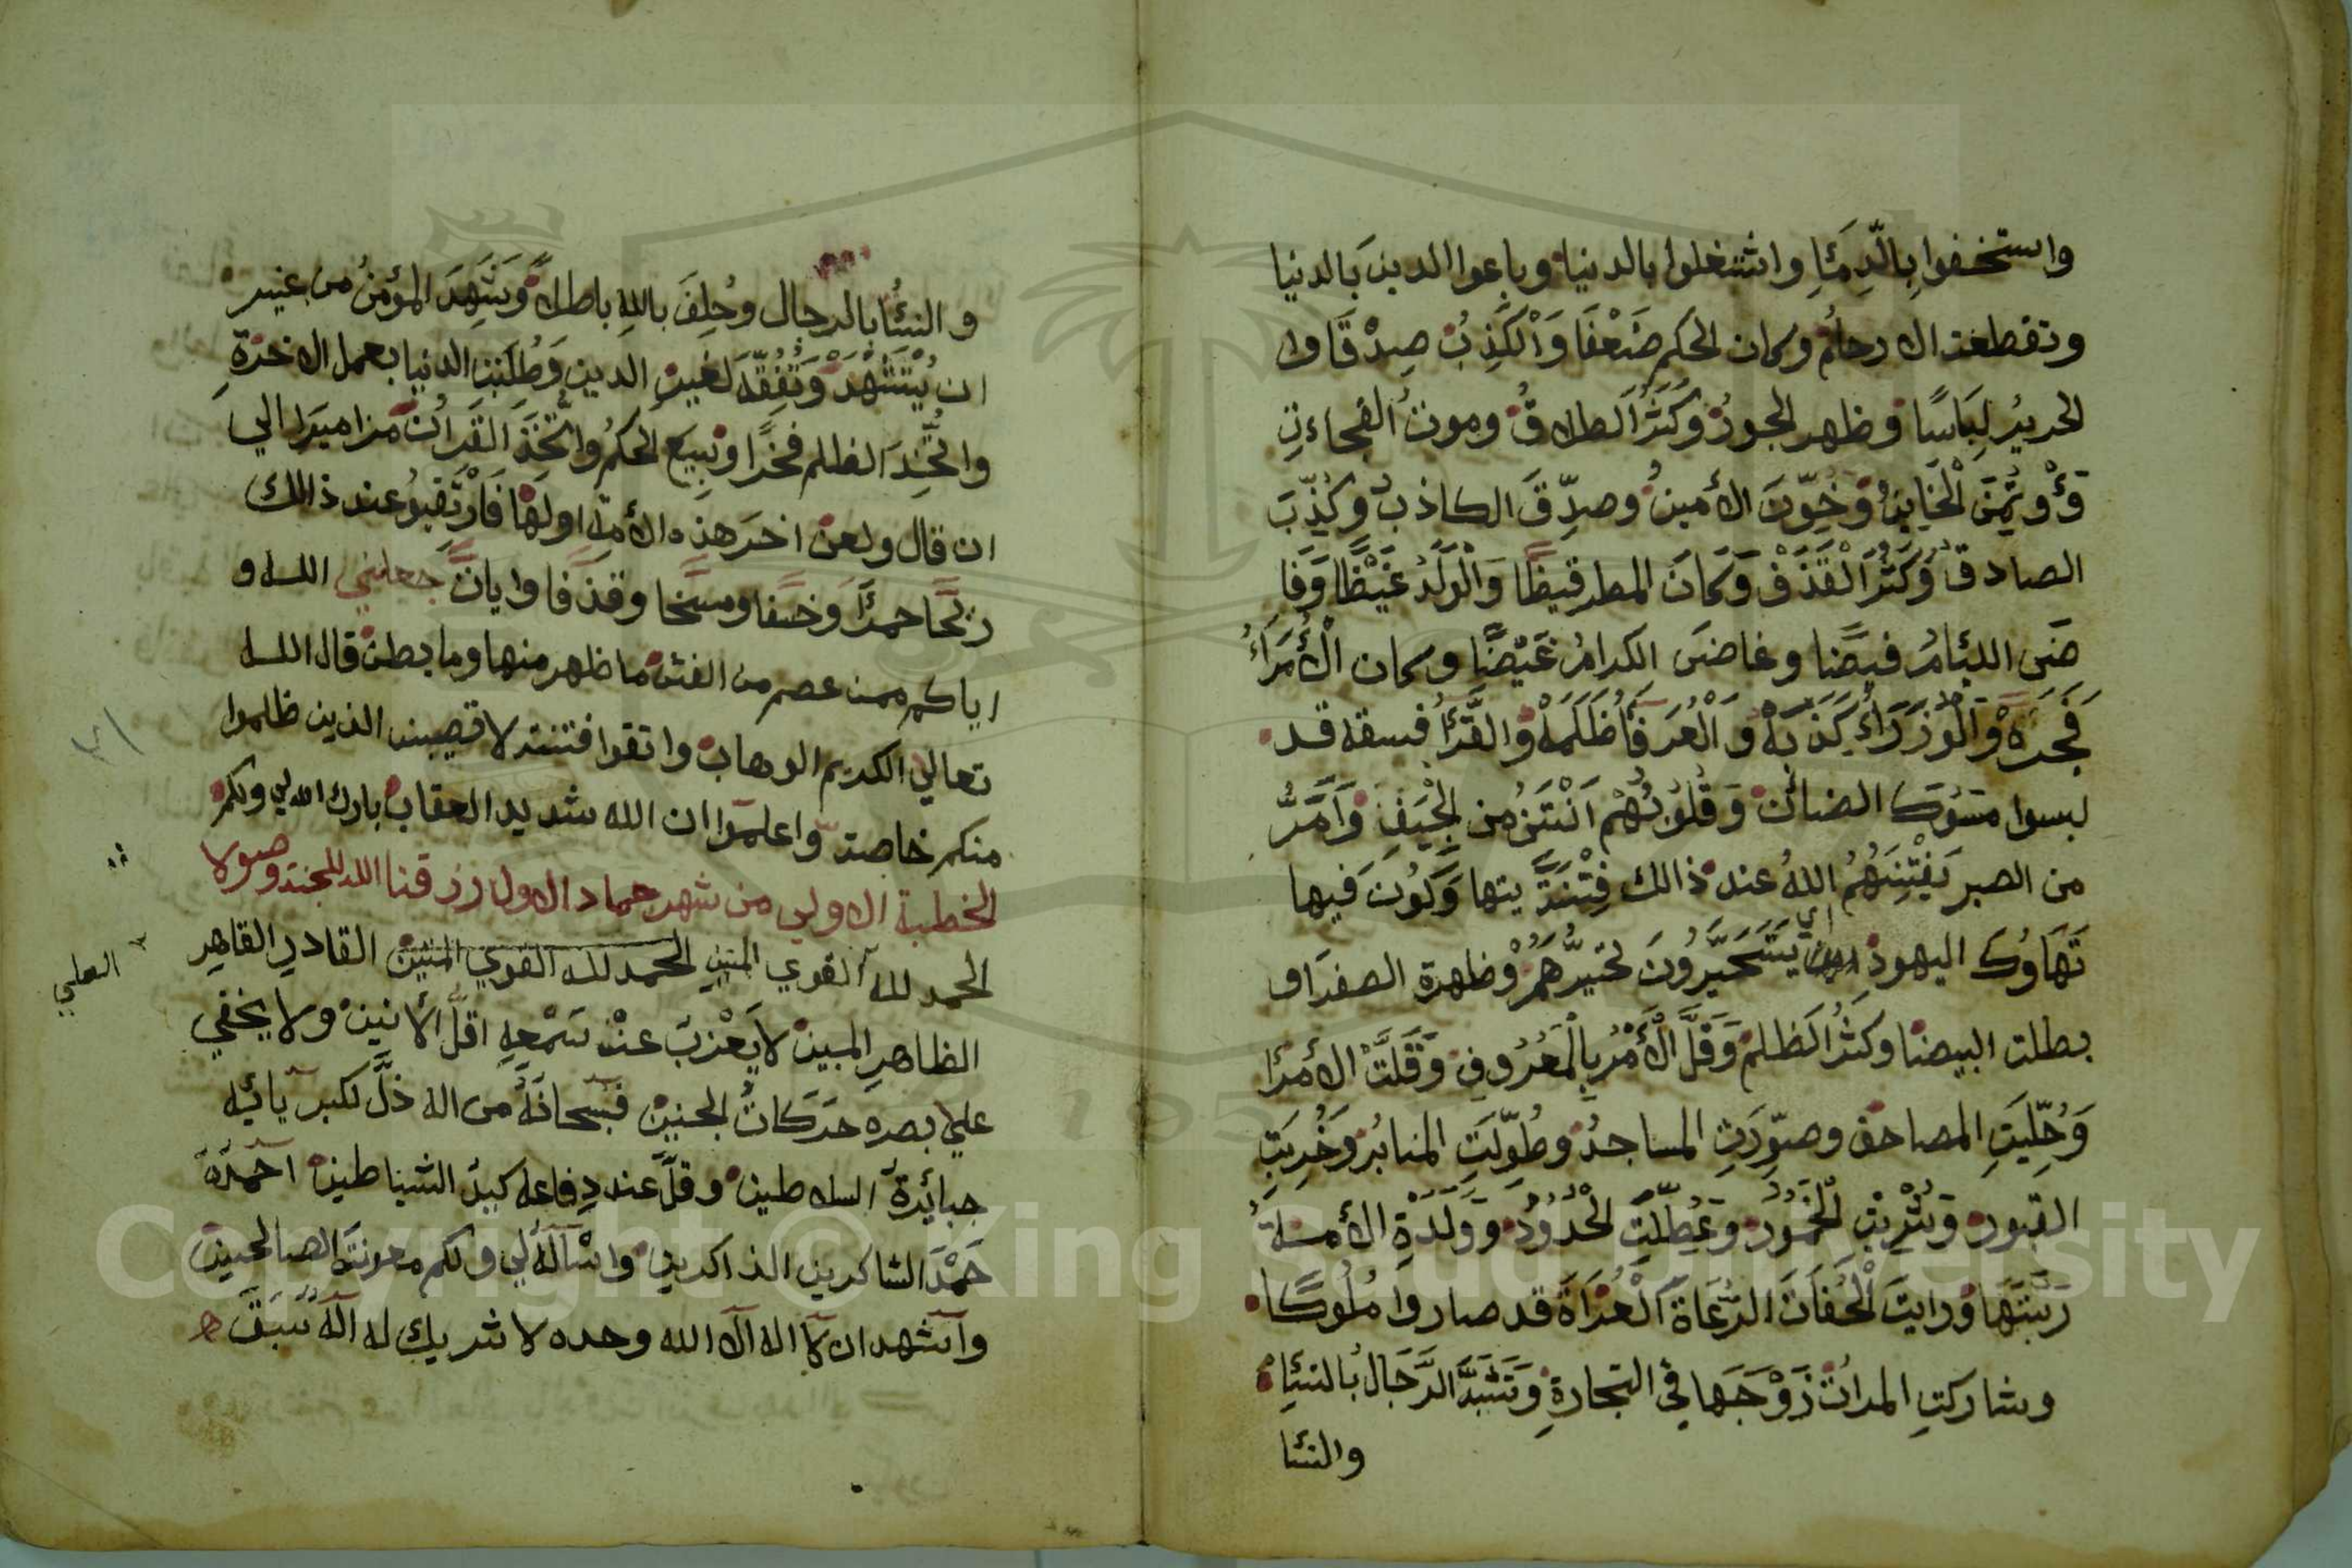 واستخفوا بِالدِّمَاِ واشتغلوا بالدنيا وباعوا الدين بالدنيا
وتقطعت الارحام وكان الحكم ضَعْفَا وَالْكَذِبُ صِدْقَا وا
لحريرُ لِبَاسًا وظهر الجورُ وَكَثُرَ الطلاقُ وموتُ الفجاءتِ
وَؤْوتُمِنَ الْخَاينُ وَخُوِّنَ الأمينُ وصدِّقَ الكاذبُ وكُذِّبَ
الصادقُ وَكَثُرَ الْقَذَفْ وَكَانَ المطر قيظًا وَالْوَلَدُ غَيْظًا وَفَا
ضَى اللئامُ فيضًا وغاضَى الكرامُ غَيْضًا وكان الْأُمَرَاءُ
فَجَرَةْ وَالْوُزَرَاءُ كَذَبَةْ وَ الْعُرَفَاُ ظَلَمَةْ وَالقُرَّاُ فسقه قد
لبسوا مسُوكَ الضائن وَقُلُوبُهُمْ اَنْتَنُ من الْجِيَفِ وَاَمَرُّ
من الصبر يَفْتِنَهُمُ اللهُ عند ذالك فِتْنَةً يتها وَكُونَ فيها
تَهَاوُكَ اليهود اي يَتَحَيَّرُونَ تحيرُّهمْ وظهرة الصفرَا و
بطلت البيضا وكثُرَ الظلم وَقَلَّ الْأَمْرُ بِالْمَعْرُوفِ وَقَلَّتْ الأمرَا
وَحُلِّيَتِ المصاحف وصوِّرَتِ المساجدُ وطُوِّلَتِ المنابرُ وَخُرِبَتِ
القبور وَشُرِبَتِ الْخُمُورُ وَعُطِّلَتِ الْحُدُودُ وَوَلَدَةِ الأمةُ
رَبَّتَهَا وَرايتَ الْحُفَاتَ الرُّعَاةَ الْعُرَاةَ قد صاروا مُلُوكًا
وشاركتِ المراتُ زَوْجَهَا في التجارةِ وَتَشَبَّهَ الرَّجَالُ بالنسَاِ
والنسا
و النسُا بالرجال وحُلِفَ باللهِ باطلا وَشَهِدَ المؤمنُ من غير
ان يُسْتَشْهَدْ وَتُفُقِّهَ لغيرِ الدين وَطُلِبَتِ الدنيا بعمل الاخرةِ
واتُّخِذَ الظلم فخرًا وبِيعَ الحكمُ واتُّخِذَ القرانُ مزاميرَا الي
ان قال ولعن اخرَ هذه الأمة اولَهَا فَارْتَقِبُو عند ذالك
ريحا حمرَا وخسفا ومسخا وقذفا وايات جعلني الله و
اياكم ممن عصم من الفتن ما ظهر منها وما بطن قال الله
تعالي الكريم الوهاب واتقوا فتنة لا تصيبن الذين ظلموا
منكم خاصة واعلموا ان الله شديد العقاب بارك الله لي ولكم
الخطبة الاولي من شهر جماد الاول رزقنا الله للجنة وصولا
الحمد لله القوي المتين الحمد لله القوي المتين القادرِ القاهِرِ
العلي
الظاهرِ المبين لا يَعْزبَ عنْ سَمْعِهِ اقلُّ الأنين ولا يخفي
علي بصره حَرَكَاتُ الجنين فسبحانَهُ من اله ذلَّ لكبريائِهِ
جبابرةَ السلاطين وقلَّ عند دِفاعه كيدُ الشياطين اَحْمَدُهُ
حَمْدَ الشاكرين الذاكرين واسْاَلهُ لي ولكم معونتَ الصالحين
واَشهد ان لا اله الا الله وحده لا شريك له الهٌ سَبَقَ